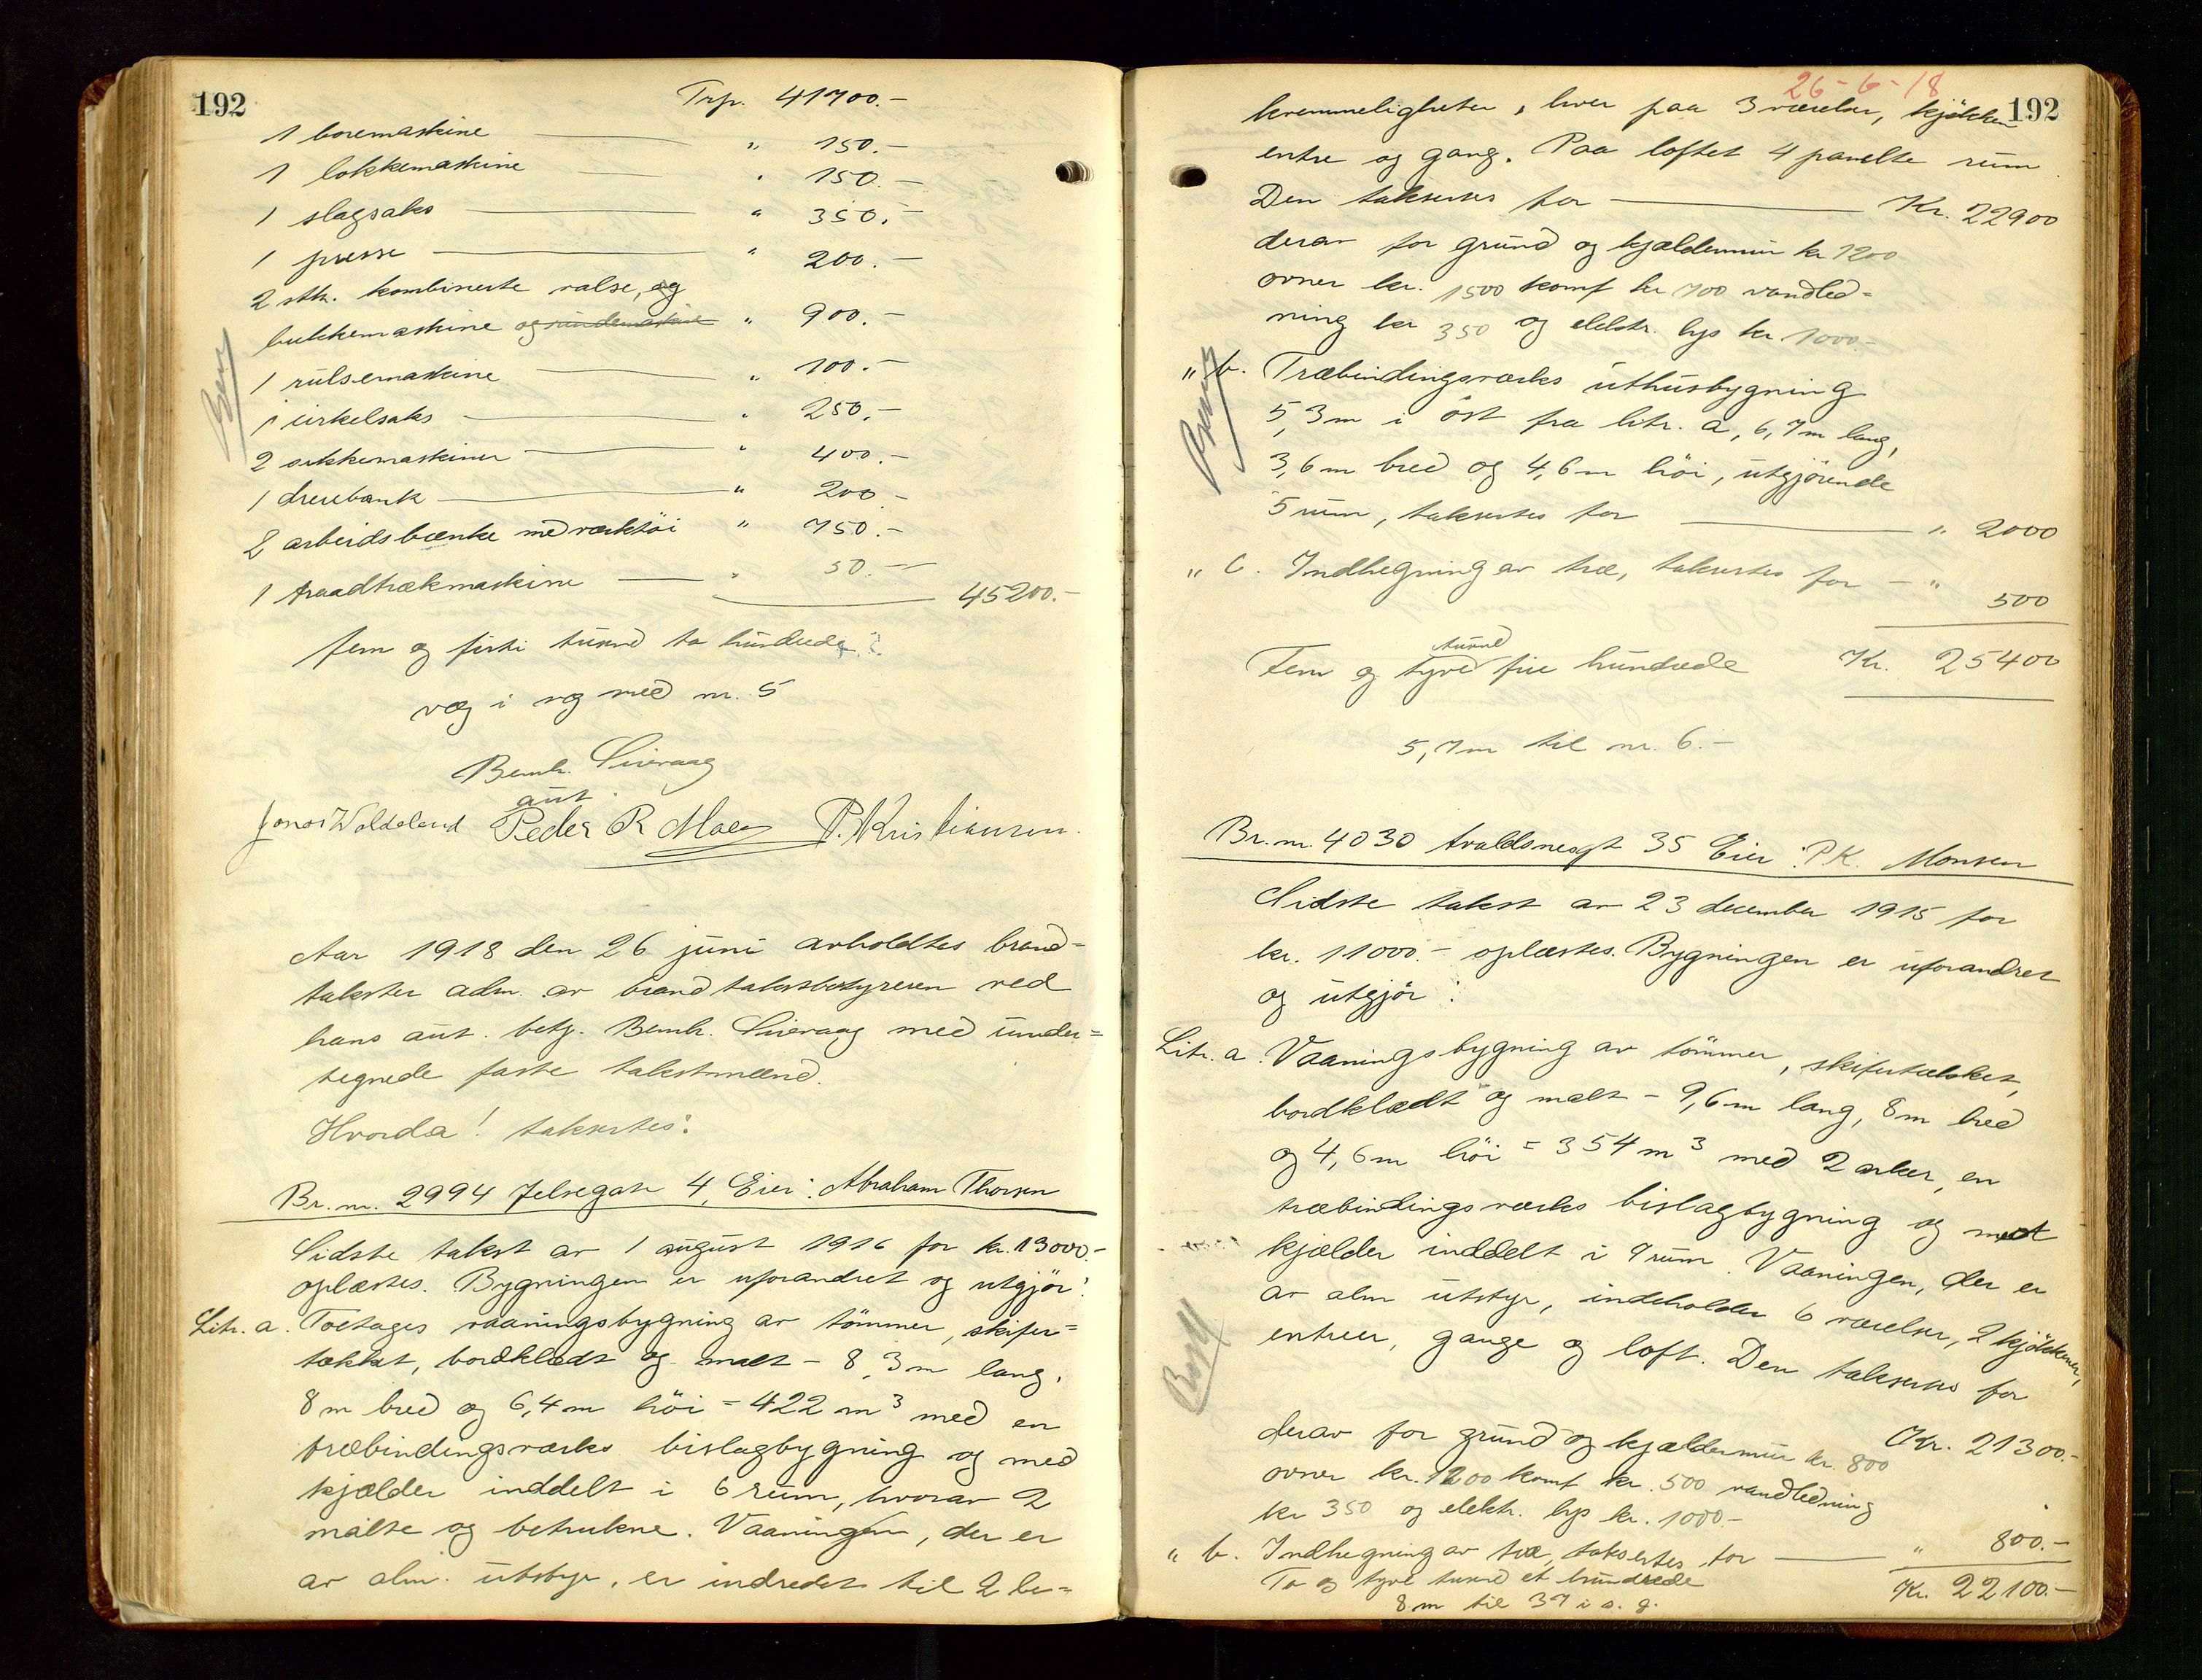 192
Trp. 41700.-
1 boremaskine " 150.-
1 lokkemaskine " 150.-
1 slagsaks " 350.-
1 presse " 200.-
2 stk. kombinerte valse, og
bukkemaskine " 900.-
1 rulsemaskine " 100.-
1 cirkelsaks " 250.-
2 sikkemaskiner " 400.-
1 dreiebænk " 200.-
2 arbeidsbænke med værktöi " 750.-
1 traadtrækmaskine " 50.- 45200.-
fem og firti tusend to hundrede
væg i væg med nr. 5
Bernh. Sivevaag
aut.
Jonas Waldeland Peder R Moe P. Kristiansen.
Aar 1918 den 26 juni avholdtes brand=
takster adm. av brandtakstbestyreren ved
hans aut. betj. Bernh. Sivevaag med under=
tegnede faste takstmænd.
Hvorda! takseertes:
Br. nr. 2994 Jelsegate 4, Eier: Abraham Thorsen
Sidste takst av 1 august 1916 for kr. 13000.-
oplæstes. Bygningen er uforandret og utgjör:
Litr. a. Toetages vaaningsbygning av tömmer, skifer=
tækket, bordklædt og malt - 8,3m lang,
8 m bred og 6,4m höi = 422 m³ med en
træbindingsværks bislagbygning og med
kjælder inddelt i 6 rum, hvorav 2
malte og betrukne. Vaaningen, der er
av alm. utstyr, er indredet til 2 be=
26-6-18
192
kvemmeligheter, hver paa 3 værelser, kjökken
entre og gang. Paa loftet 4 panelte rum
Den takseres for Kr. 22900
derav for grund og kjældermur kr 1200
ovner kr. 1500 komf kr 700 vandled=
ning kr 350 og elektr. lys kr. 1000.-
" b. Træbindingsværks uthusbygning
5,3m i öst fra litr. a, 6,7m lang,
3,6m bred og 4,6m höi, utgjörende
5 rum, taksertes for " 2000
" c. Indhegning av træ, taksertes for - " 500
tusend
Fem og tyve fire hundrede Kr. 25400
5,7m til nr. 6.-
Br. nr. 4030 Avaldsnesgt 35 Eier: P K. Monsen
Sidste takst av 23 december 1915 for
kr. 11000.- oplæstes. Bygningen er uforandret
og utgjör:
Litr. a. Vaaningsbygning av tömmer, skifertækket,
bordklædt og malt - 9,6m lang, 8m bred
og 4,6m höi = 354 m³ med 2 arker, en
træbindingsværks bislagbygning og med
kjælder inddelt i 7 rum. Vaaningen, der er
av alm utstyr, indeholder 6 værelser, 2 kjökkener,
entreer, gange og loft. Den takseres for
Kr. 21300.-
derav for grund og kjældermur kr. 800
ovner kr. 1200 komf kr. 500 vandledning
kr 350 og elektr. lys kr. 1000.-
" b. Indhegning av træ, taksertes for " 800.-
To og tyve tusend et hundrede Kr. 22100.-
8 m til 37 i s. g.